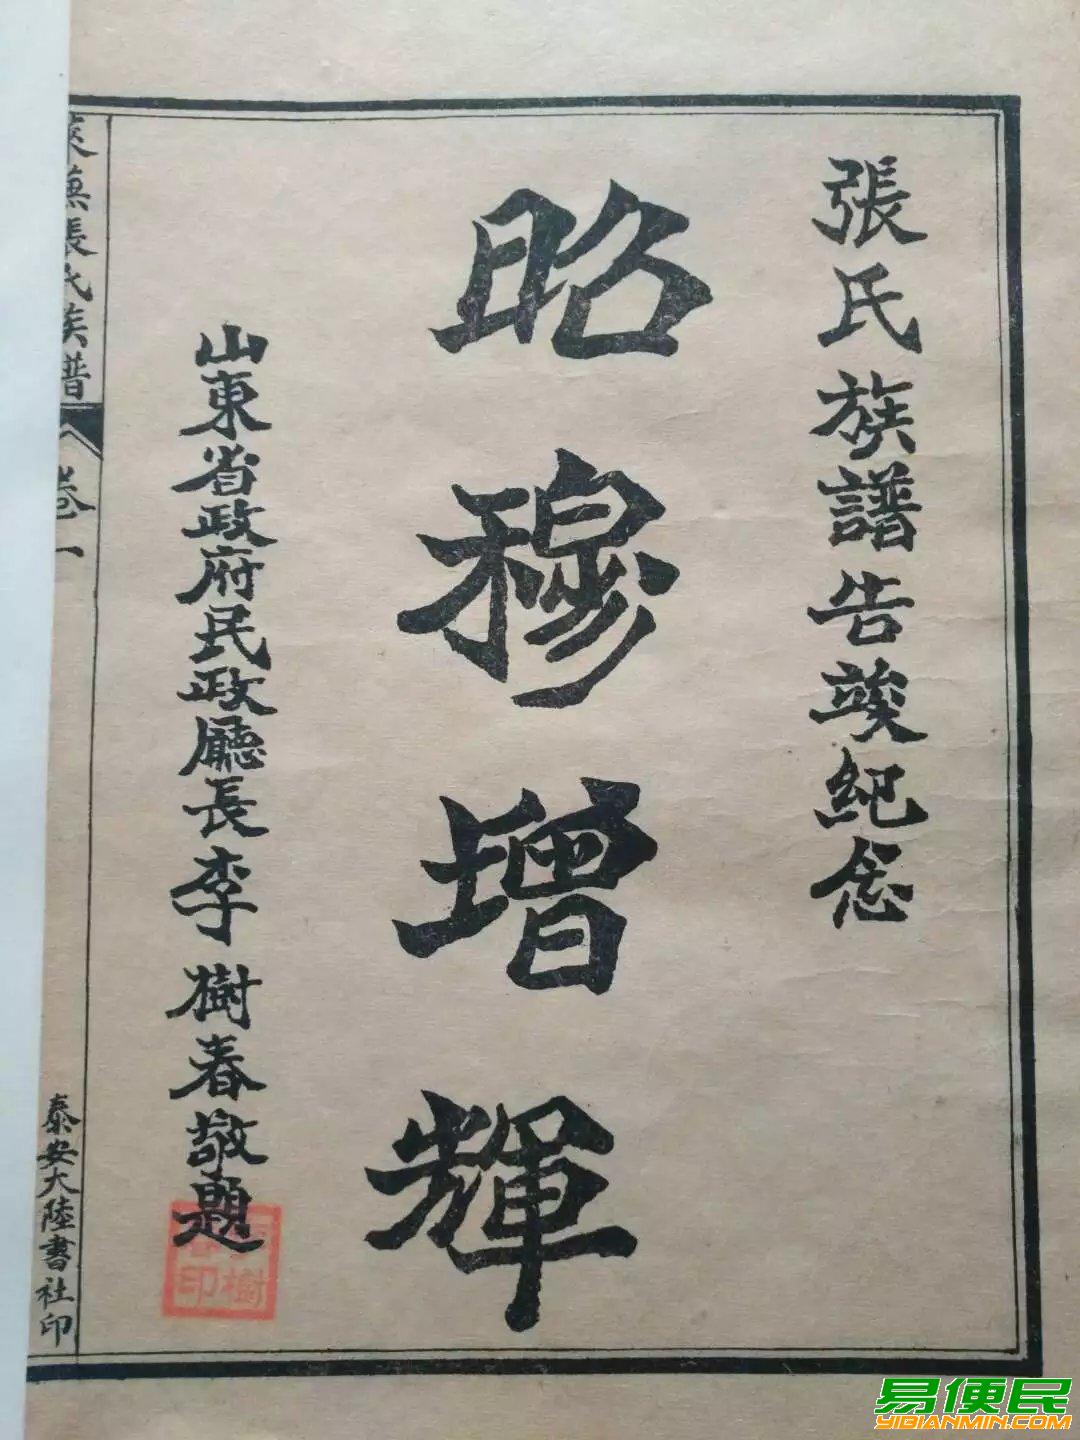 張氏族譜告竣紀念
昭穆增輝
山東省政府民政廳長李樹春敬題
李樹春印
萊蕪張氏族譜
卷一
泰安大陸書社印
易便民
YIBIANMIN.COM